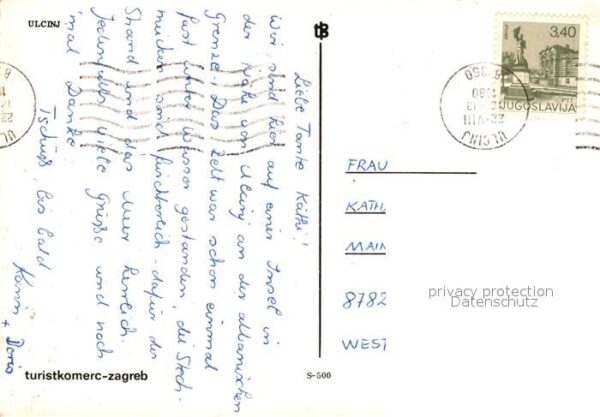 ULCINJ
Liebe Tante Käthi!
Wir sind hier auf einer Insel in
der Nähe von Ulcinj an der albanischen
Grenze. Das Zelt war schon einmal
fast unter Wasser gestanden, die Stech-
mücken sind fürchterlich - dafür der
Strand und das Meer herrlich.
Jedenfalls viele Grüße und noch
mal Danke
Tschüß, bis bald
Karin + Doris
turistkomerc-zagreb
S-500
3,40
JUGOSLAVIJA
22-VIII
ULCINJ
FRAU
KATH
MAIN
8782
WEST
privacy protection
Datenschutz